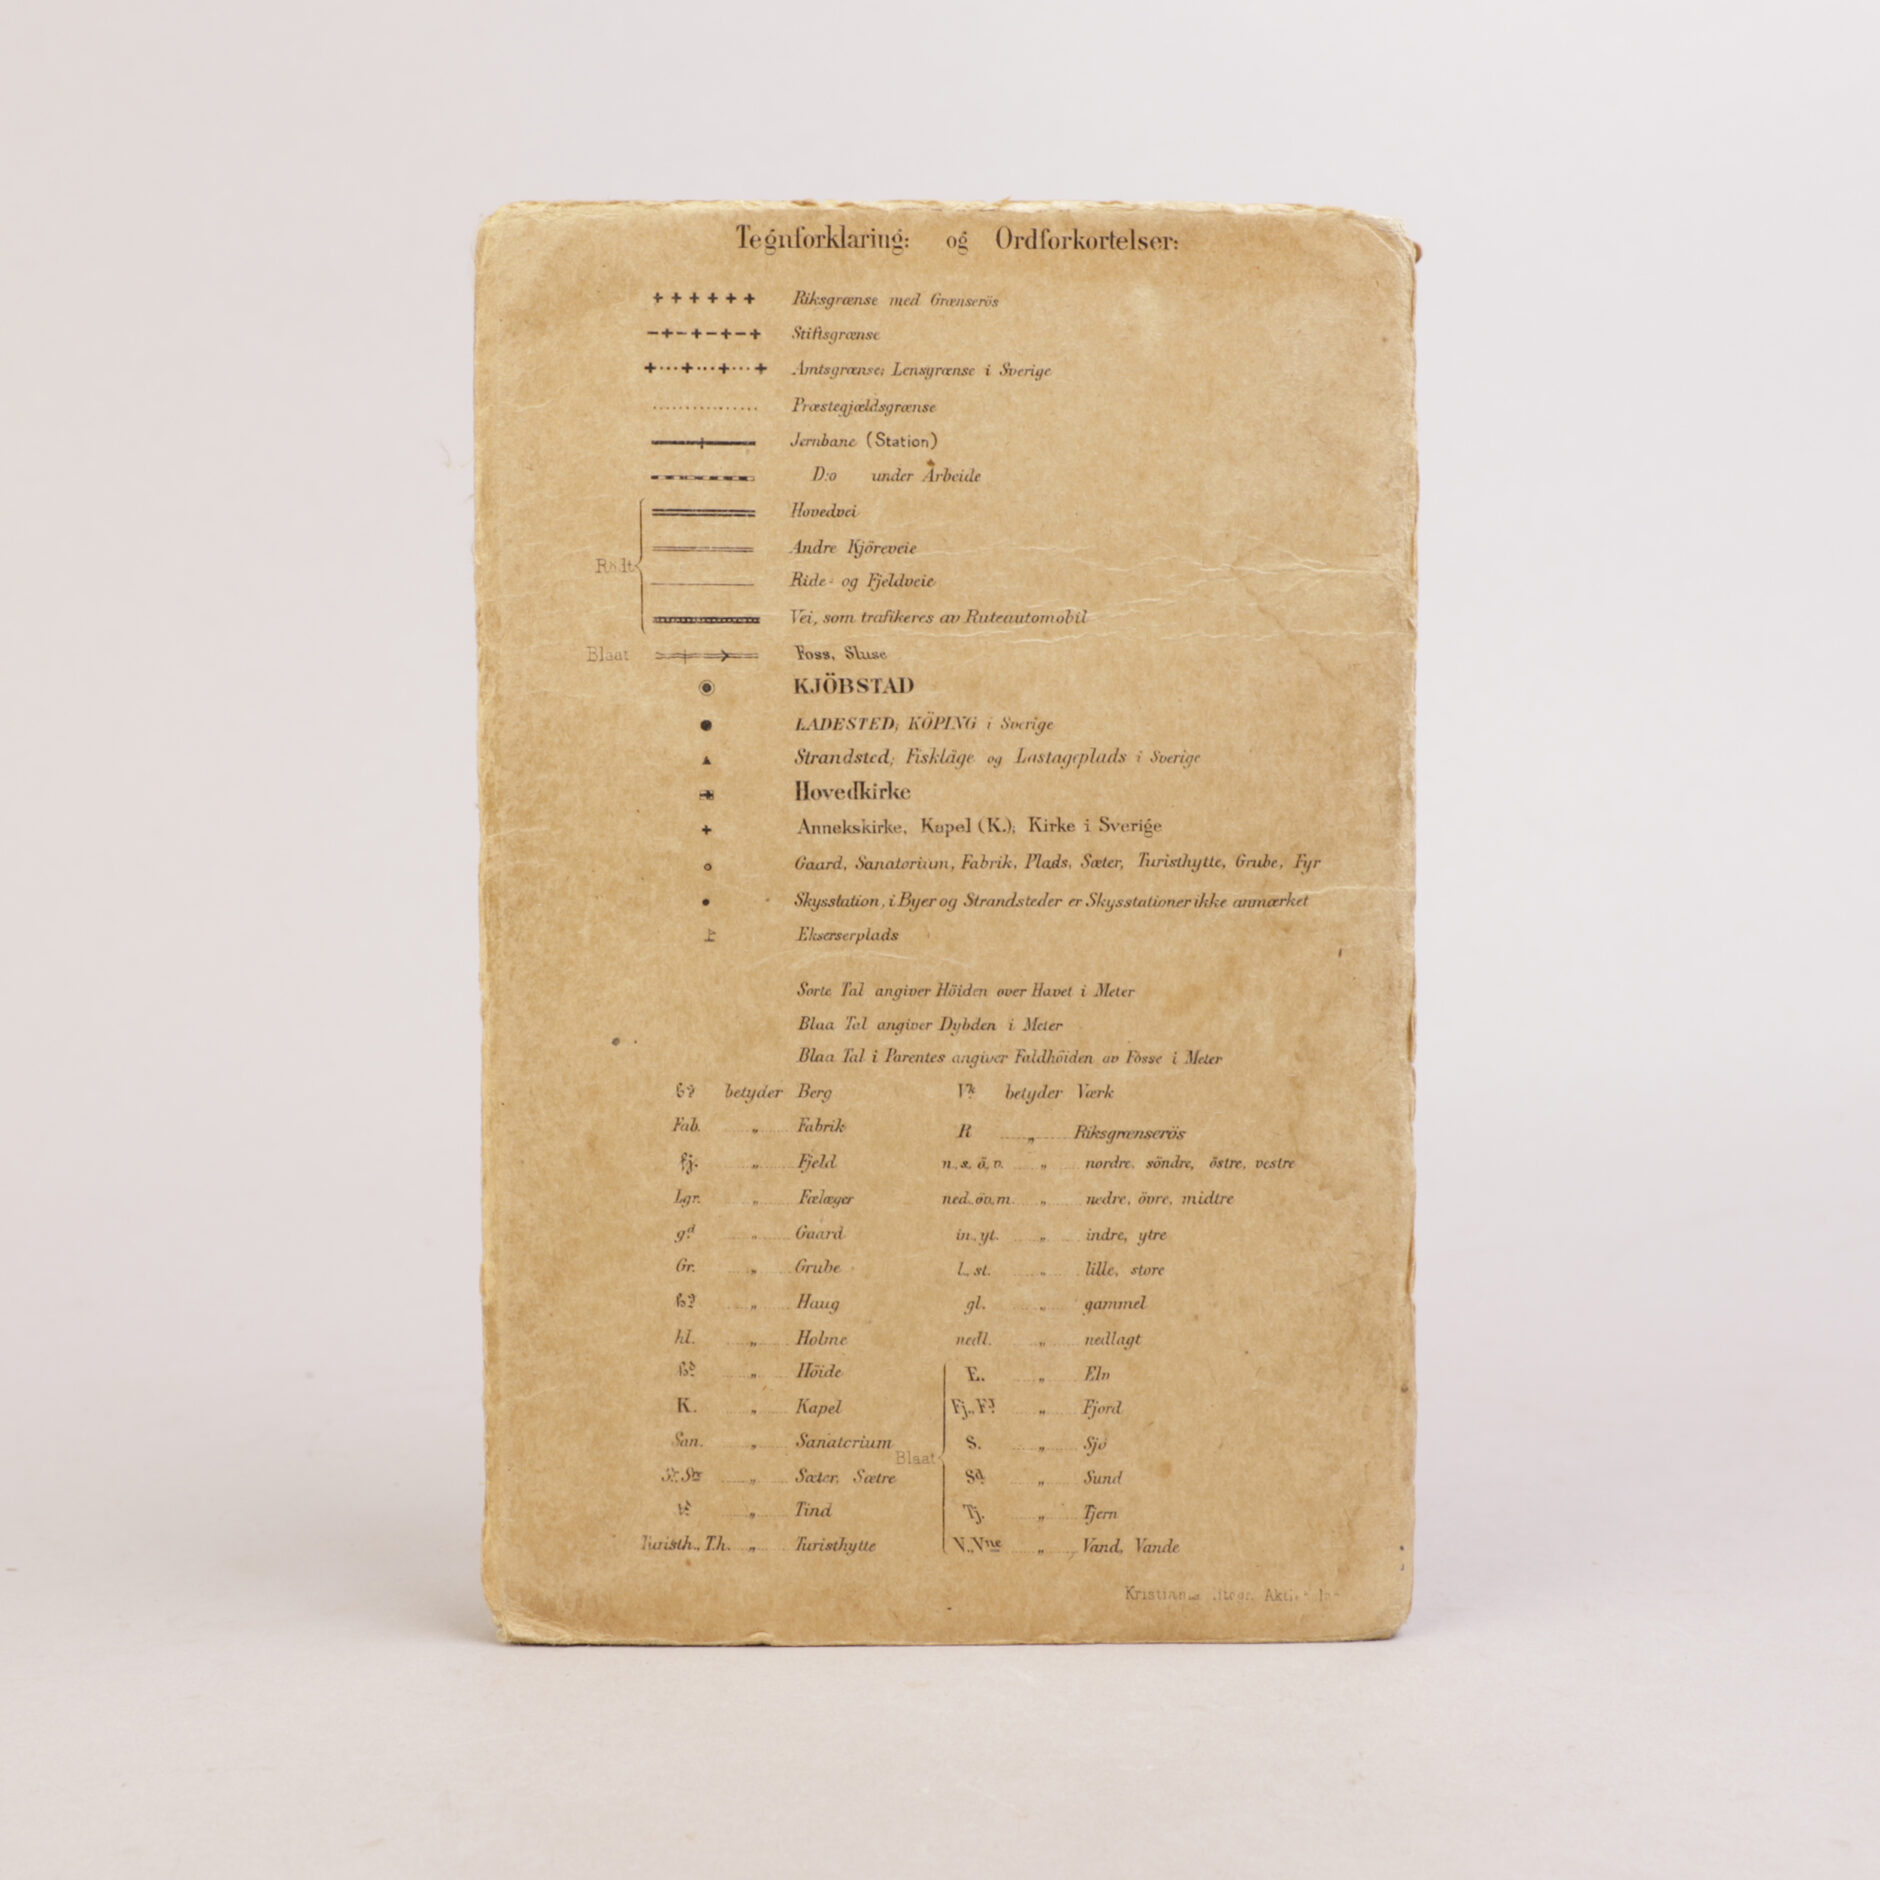 Tegnforklaring: og Ordforkortelser:
Riksgrænse med Grænserös
Stiftsgrænse
Amtsgrænse; Lensgrænse i Sverige
Præstegjældsgrænse
Jernbane (Station)
D:o under Arbeide
Hovedvei
Andre Kjöreveie
Rødt
Ride- og Fjeldveie
Vei, som trafikeres av Ruteautomobil
Blaat Foss, Sluse
KJÖBSTAD
LADESTED; KÖPING i Sverige
Strandsted; Fiskläge og Lastageplads i Sverige
Hovedkirke
Annekskirke, Kapel (K.); Kirke i Sverige
Gaard, Sanatorium, Fabrik, Plads, Sæter, Turisthytte, Grube, Fyr
Skysstation, i Byer og Strandsteder er Skysstationer ikke anmærket
Ekserserplads
Sorte Tal angiver Höiden over Havet i Meter
Blaa Tal angiver Dybden i Meter
Blaa Tal i Parentes angiver Faldhöiden av Fosse i Meter
bg betyder Berg Vk betyder Værk
Fab. „ Fabrik R „ Riksgrænserös
fj. „ Fjeld n., s., ö., v. „ nordre, söndre, östre, vestre
Lgr. „ Fælæger ned., öv., m. „ nedre, övre, midtre
gd „ Gaard in., yt. „ indre, ytre
Gr. „ Grube l., st. „ lille, store
hg „ Haug gl. „ gammel
hl. „ Holme nedl. „ nedlagt
hd „ Höide E. „ Elv
K. „ Kapel Fj., Fd „ Fjord
San. „ Sanatorium S. „ Sjö
Blaat
Sr, Sre „ Sæter, Sætre Sd „ Sund
td „ Tind Tj. „ Tjern
Turisth., T.h. „ Turisthytte V., Vne „ Vand, Vande
Kristiania